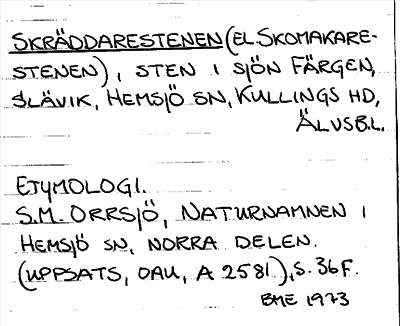 SKRÄDDARESTENEN (EL SKOMAKARE-
STENEN), STEN I SJÖN FÄRGEN,
SLÄVIK, HEMSJÖ SN, KULLINGS HD,
ÄLVSB.L.
ETYMOLOGI.
S.M. ORRSJÖ, NATURNAMNEN I
HEMSJÖ SN, NORRA DELEN.
(UPPSATS, OAU, A 2581), S. 36 F.
BME 1973